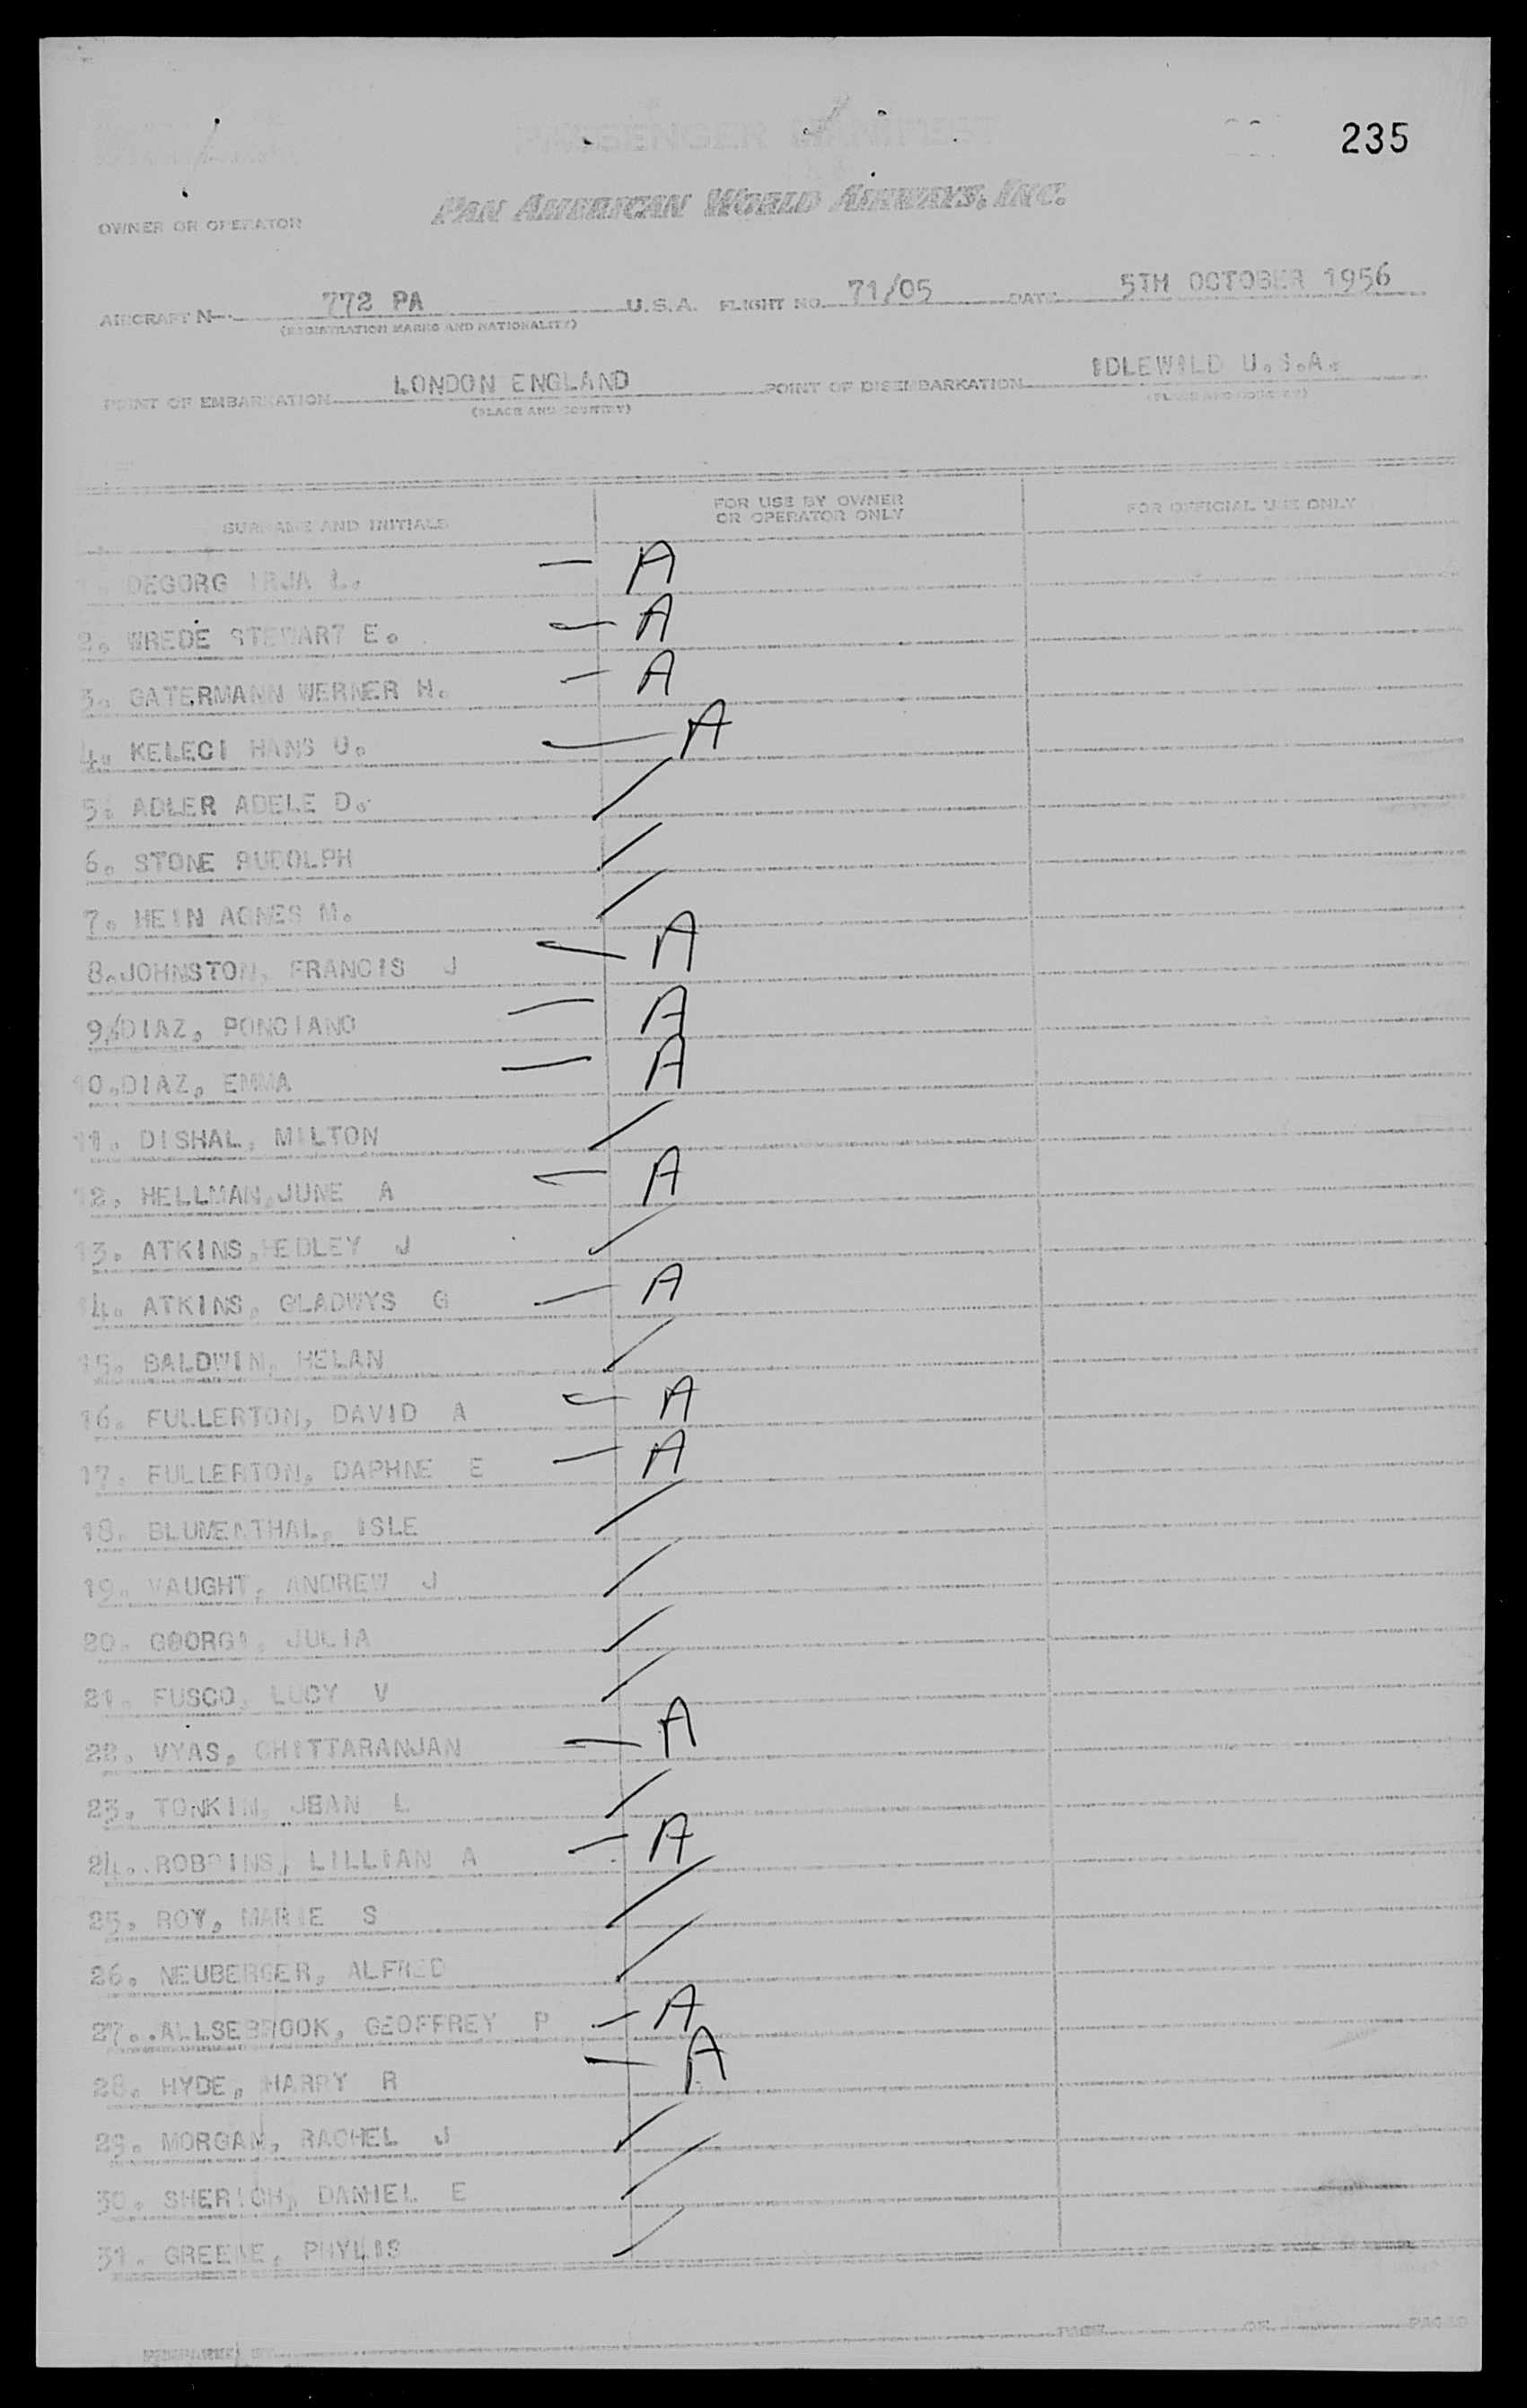 235
PASSENGER MANIFEST
OWNER OR OPERATOR PAN AMERICAN WORLD AIRWAYS, INC.
AIRCRAFT N 772 PA U.S.A. FLIGHT NO. 71/05 DATE 5TH OCTOBER 1956
(REGISTRATION MARKS AND NATIONALITY)
POINT OF EMBARKATION LONDON ENGLAND POINT OF DISEMBARKATION IDLEWILD U.S.A.
(PLACE AND COUNTRY) (PLACE AND COUNTRY)
SURNAME AND INITIALS FOR USE BY OWNER OR OPERATOR ONLY FOR OFFICIAL USE ONLY
DEGORG IRJA L. — A
2. WREDE STEWART E. — A
3. GATERMANN WERNER H. — A
4. KELECI HANS U. — A
5. ADLER ADELE D. /
6. STONE RUDOLPH /
7. HEIN AGNES M. /
8. JOHNSTON, FRANCIS J — A
9. DIAZ, PONCIANO — A
10. DIAZ, EMMA — A
11. DISHAL, MILTON /
12. HELLMAN, JUNE A — A
13. ATKINS, HEDLEY J /
14. ATKINS, GLADWYS G — A
15. BALDWIN, HELAN /
16. FULLERTON, DAVID A — A
17. FULLERTON, DAPHNE E — A
18. BLUMENTHAL, ISLE /
19. VAUGHT, ANDREW J /
20. GEORGI, JULIA /
21. FUSCO, LUCY V /
22. VYAS, CHITTARANJAN — A
23. TONKIN, JEAN L /
24. ROBBINS, LILLIAN A — A
25. ROY, MARIE S /
26. NEUBERGER, ALFRED /
27. ALLSEBROOK, GEOFFREY P — A
28. HYDE, HARRY R — A
29. MORGAN, RACHEL J /
30. SHERICH, DANIEL E /
31. GREENE, PHYLIS /
PREPARED BY PAGE OF PAGES